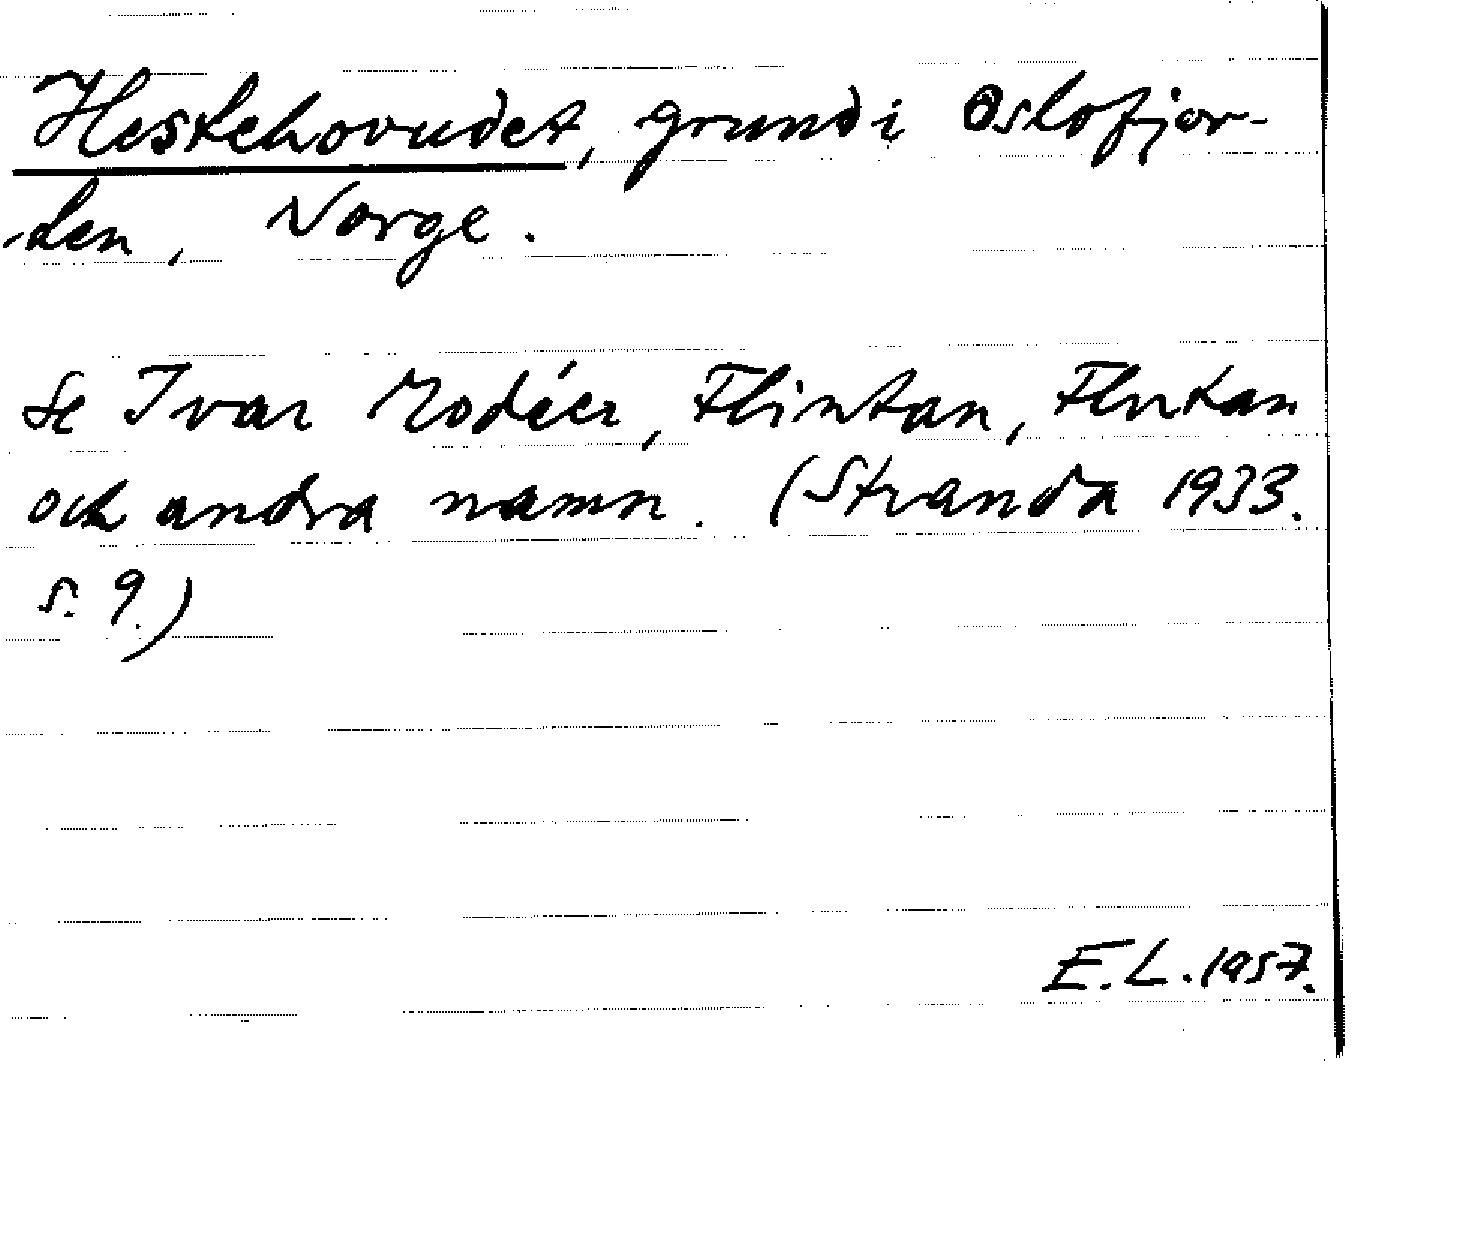 Hestehovudet, grund i Oslofjor-
-den, Norge.
Se Ivar Modéer, Flintan, Flutan
och andra namn. (Stranda 1933.
s. 9.)
E.L. 1957.